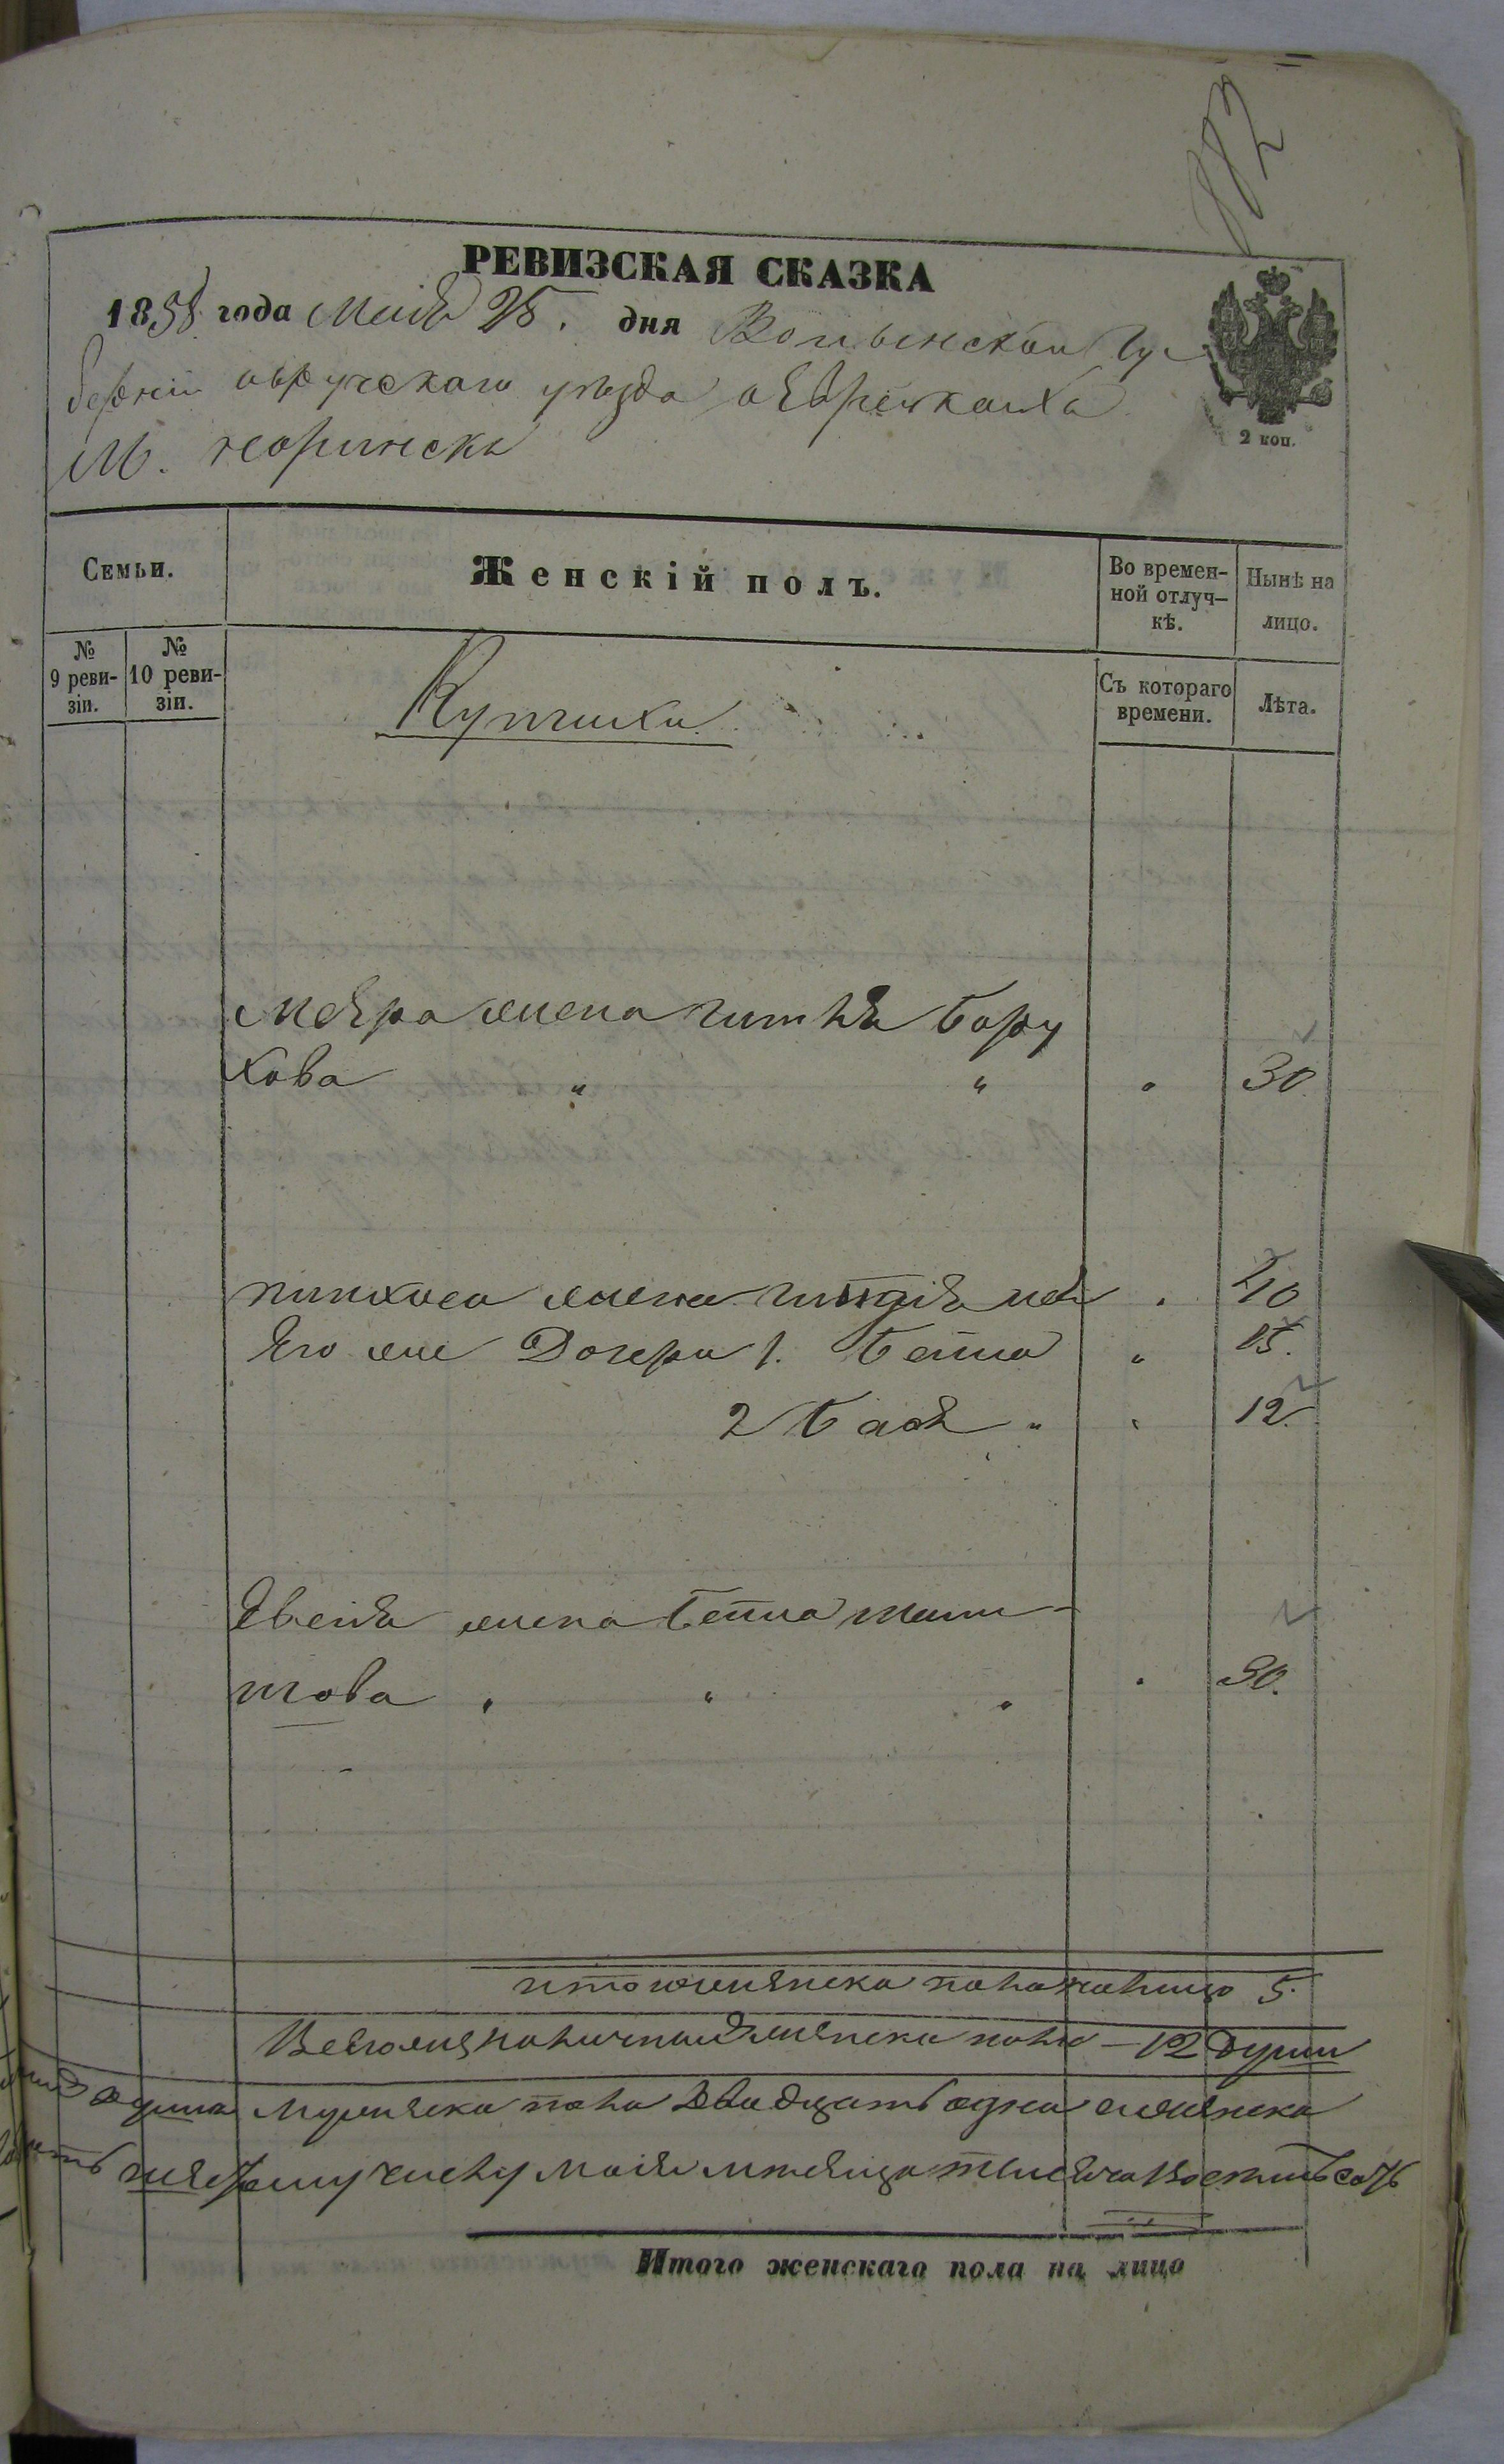 РЕВИЗСКАЯ СКАЗКА
1858 года Маія 25. дня Волынской Гу-
берніи овручскаго уезда о Евреяхъ
М. норинска
2 коп.
Семьи.
Женскій полъ.
Во времен-
ной отлуч-
кѣ.
Нынѣ на
лицо.
№
9 реви-
зіи.
№
10 реви-
зіи.
Съ котораго
времени.
Лѣта.
Купчихи
Меера жена гитля Бору
хова " " " 30
пинхоса жена 40
Его же Дочери 1. Бейла " 15.
2 Бася " " 12
жена Бейла
това " " " 30.
итого женска пола на лицо 5.
женска пола – 12 души
мужеска пола двадцать одна женска
числу маія месяца тысяча восемьсотъ
Итого женскаго пола на лицо